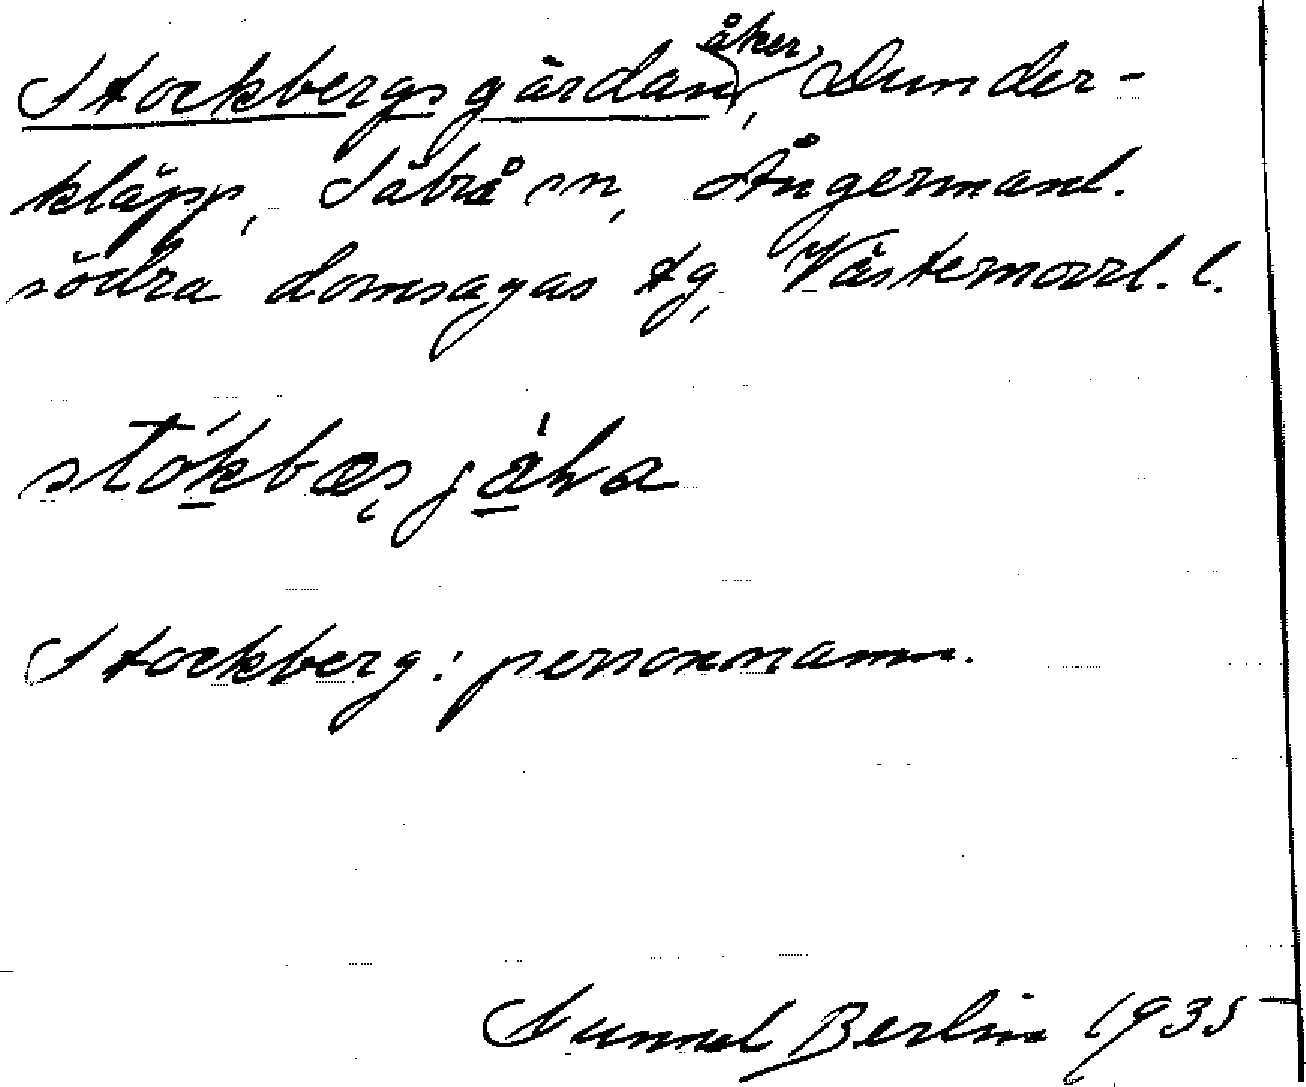 Stockbergsgärdan, åker, Dunder-
kläpp, Säbrå sn, Ångermanl.
södra domsagas tg, Västernorrl. l.
Stockberg: personnamn.
Gunnel Berlin 1935